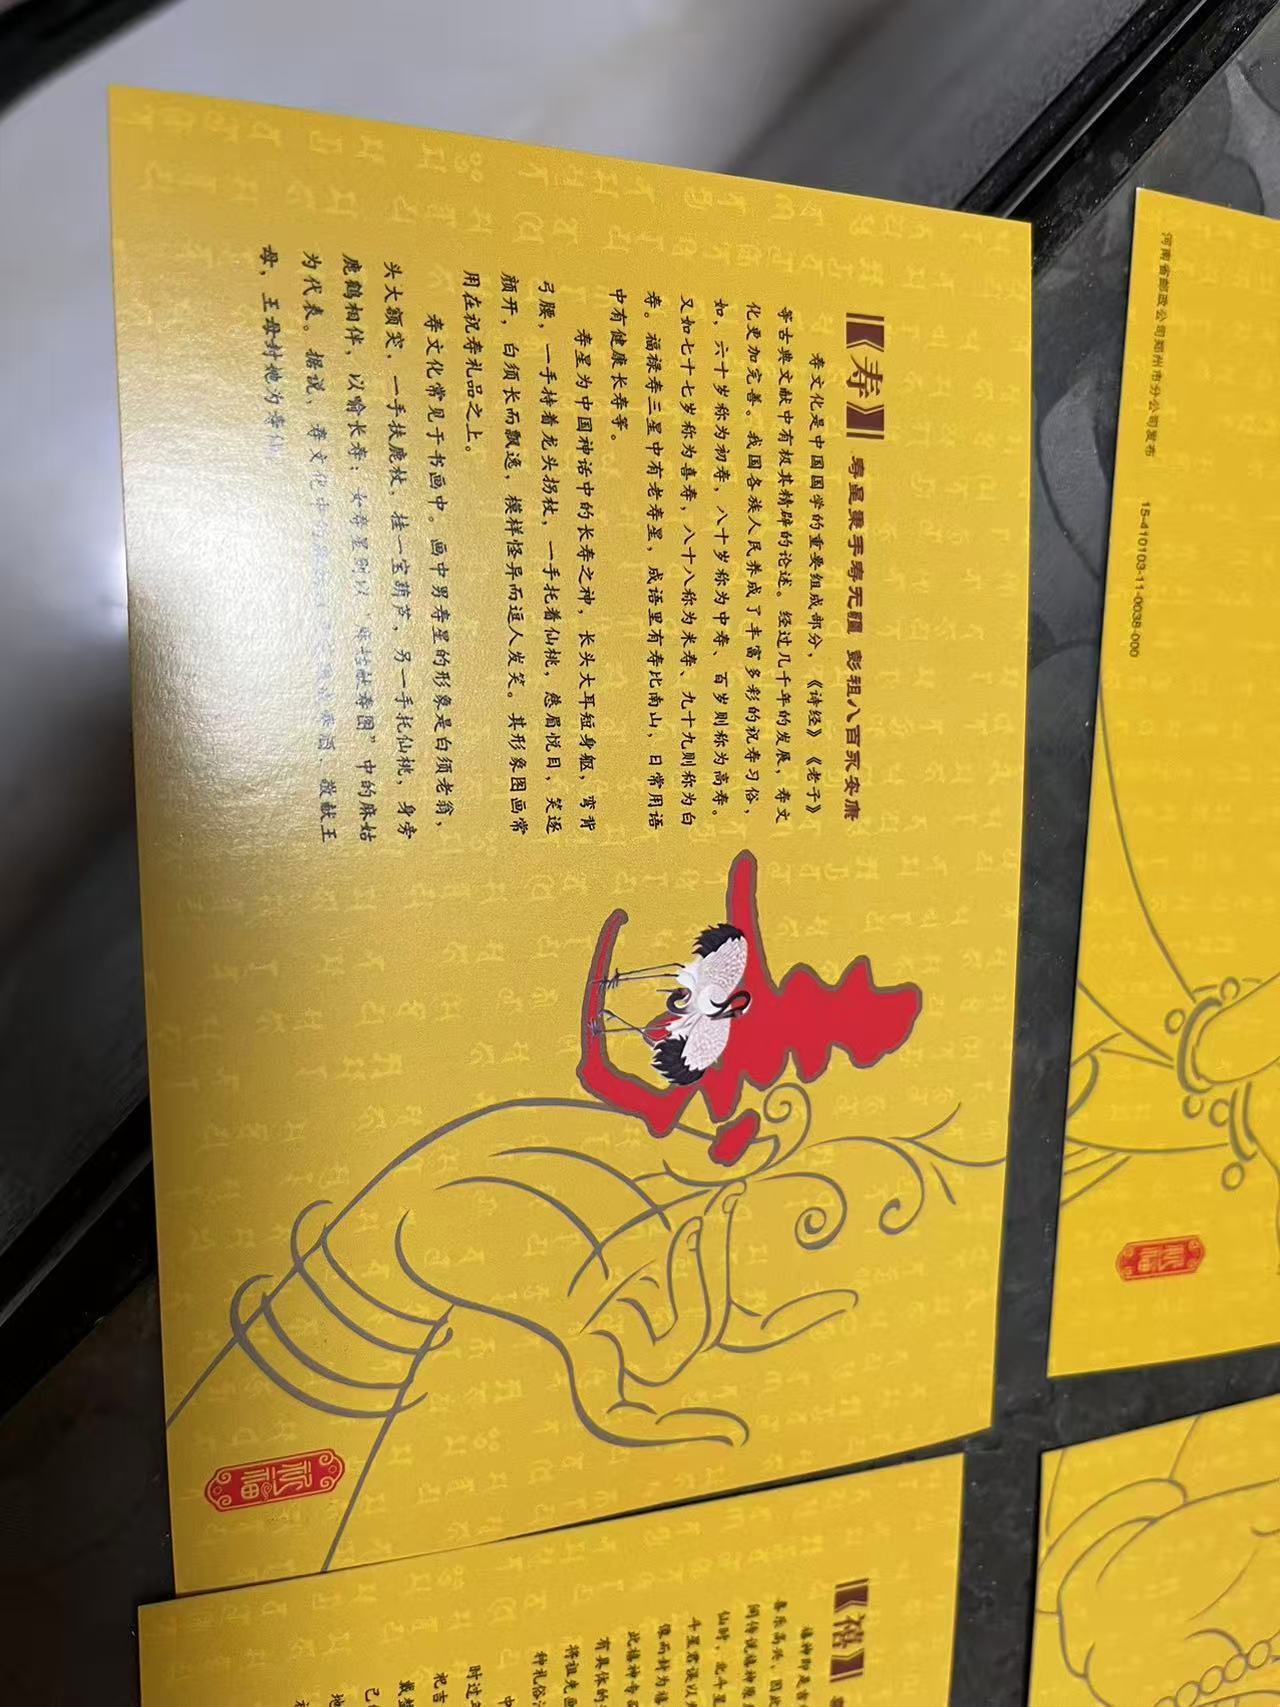 《寿》 寿星秉手寿无疆 彭祖八百永安康
寿文化是中国国学的重要组成部分，《诗经》《老子》
等古典文献中有极其精辟的论述。经过几千年的发展，寿文
化更加完善。我国各族人民养成了丰富多彩的祝寿习俗，
如，六十岁称为初寿，八十岁称为中寿、百岁则称为高寿。
又如七十七岁称为喜寿，八十八称为米寿、九十九则称为白
寿。福禄寿三星中有老寿星，成语里有寿比南山，日常用语
中有健康长寿等。
寿星为中国神话中的长寿之神，长头大耳短身躯，弯背
弓腰，一手持着龙头拐杖，一手托着仙桃，慈眉悦目，笑逐
颜开，白须长而飘逸，模样怪异而逗人发笑。其形象图画常
用在祝寿礼品之上。
寿文化常见于书画中。画中男寿星的形象是白须老翁，
头大额突，一手扶鹿杖，挂一宝葫芦，另一手托仙桃，身旁
鹿鹤相伴，以喻长寿；女寿星则以“麻姑献寿图”中的麻姑
为代表。据说，寿文化中的 酒、敬献王
母，王母封她为寿仙。
祈福
河南省邮政公司郑州市分公司发布
15-410103-11-0038-000
祈福
《禧》
禧神即是吉
喜乐高兴，因此
间传说禧神原
仙时，北斗星
斗星君误以
像而封为禧
此禧神专
有具体的
将祖先画
种礼俗
中
时过
祀吉
戴
己
地